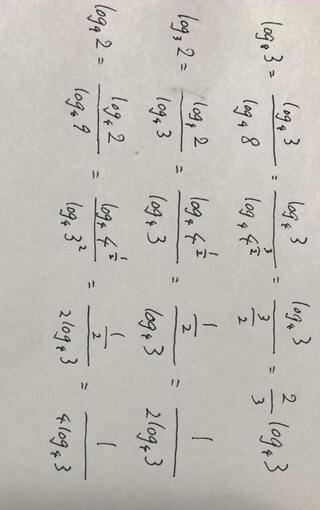 log₈3 = log₄3 / log₄8 = log₄3 / log₄4^(3/2) = log₄3 / (3/2) = 2/3 log₄3
log₃2 = log₄2 / log₄3 = log₄4^(1/2) / log₄3 = (1/2) / log₄3 = 1 / 2log₄3
log₉2 = log₄2 / log₄9 = log₄4^(1/2) / log₄3² = (1/2) / 2log₄3 = 1 / 4log₄3